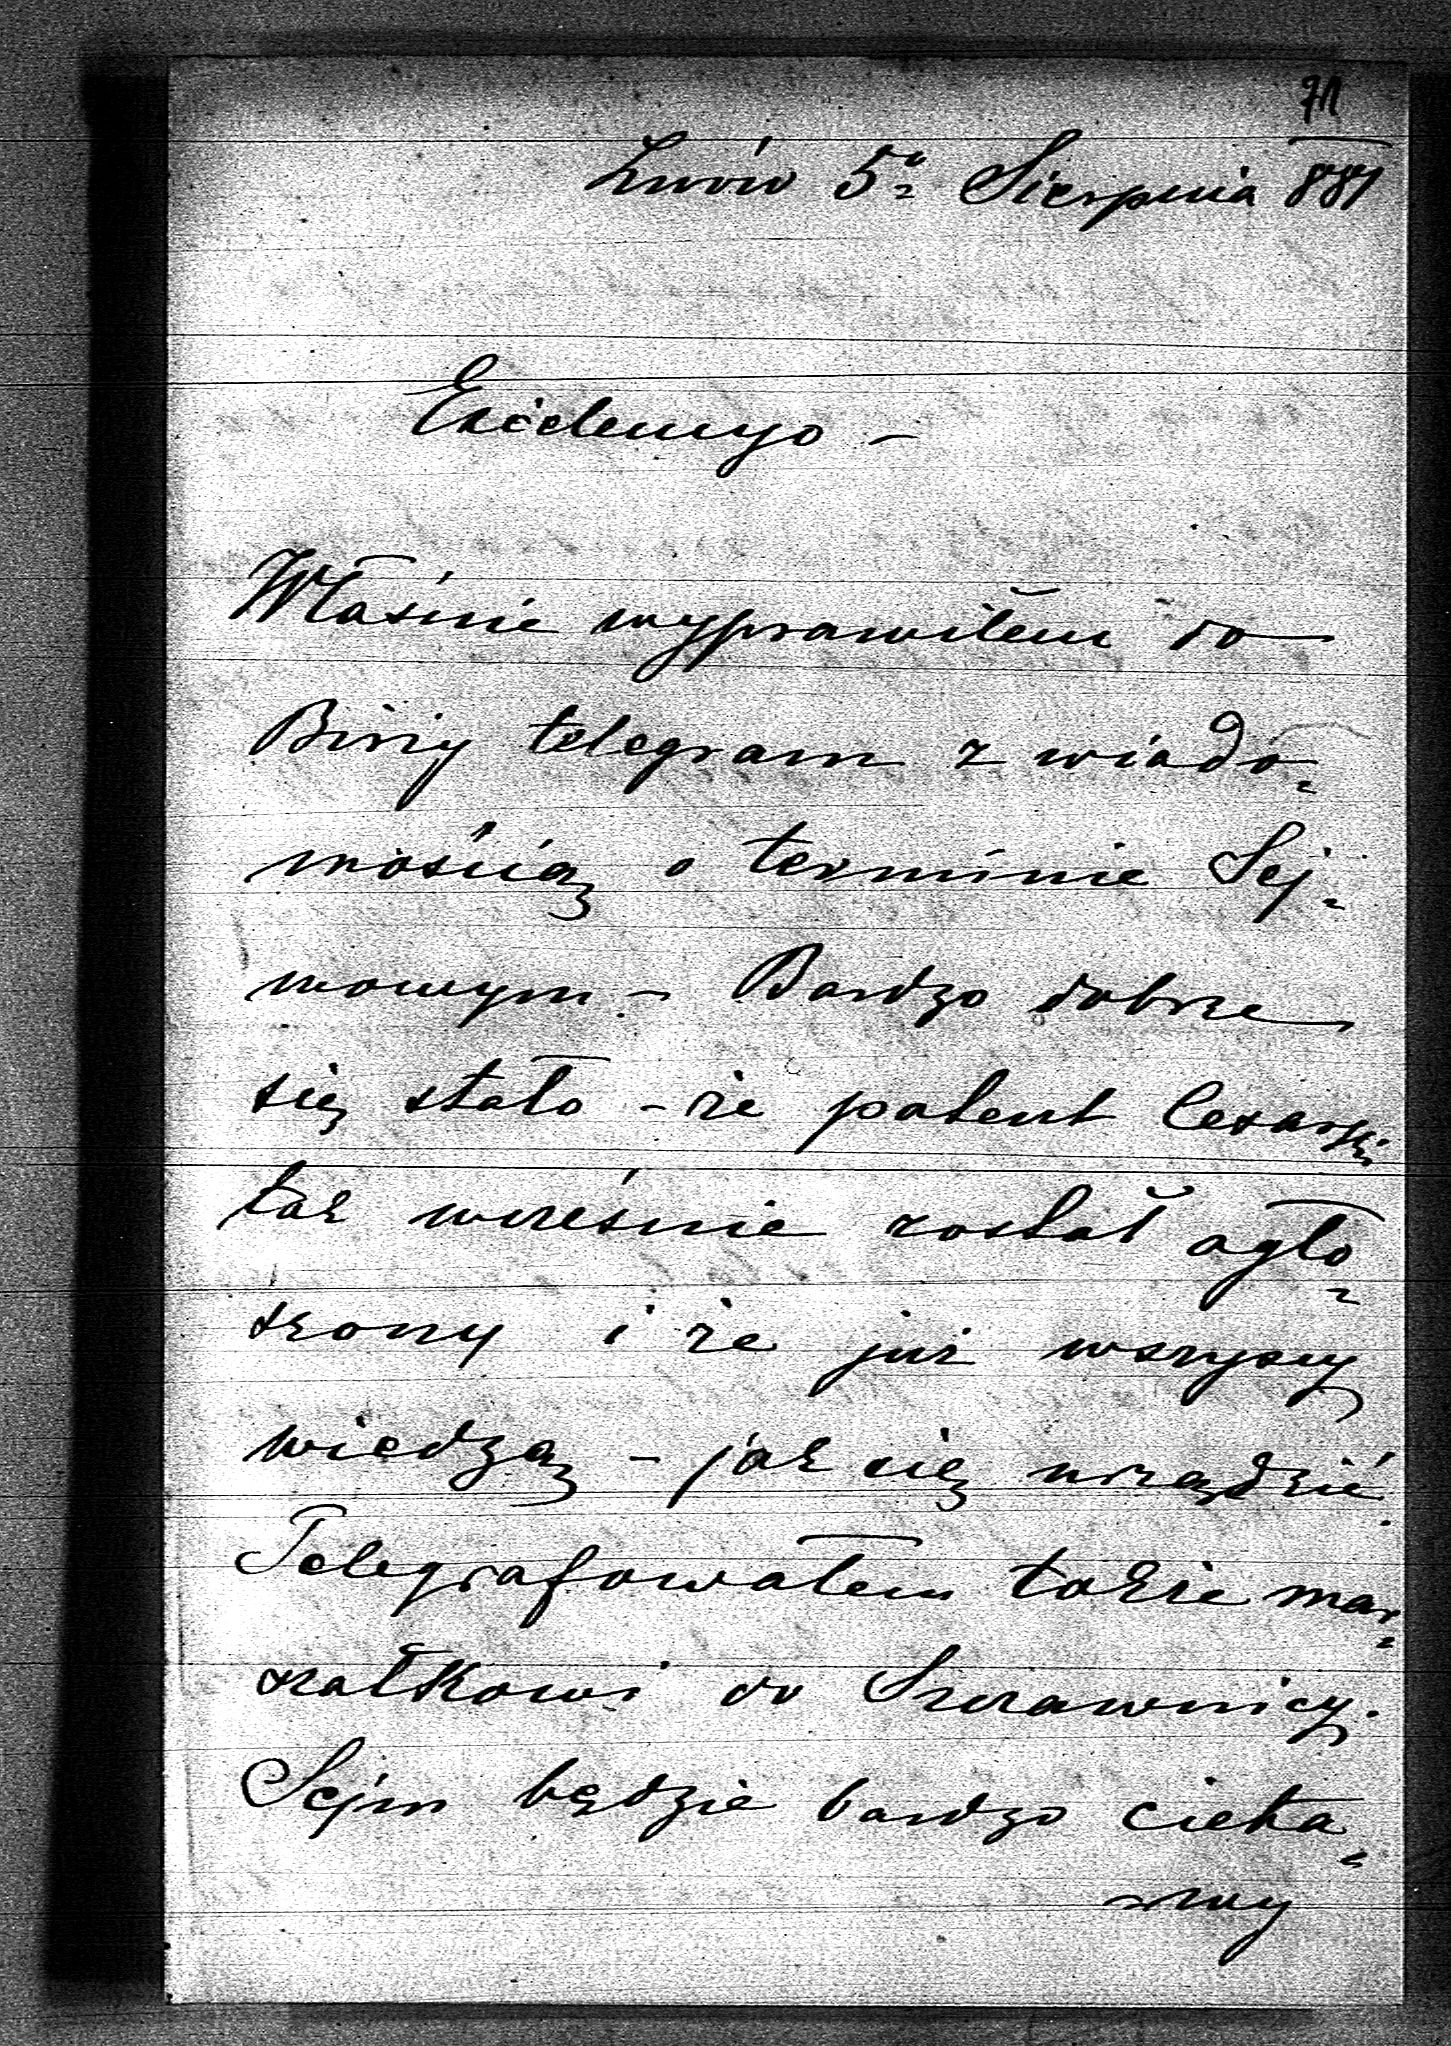 71
Lwów 5º Sierpnia 881
Excelencyo –
Właśnie wyprawiłem do
telegram z wiado=
mością o terminie Sej=
mowym – Bardzo dobrze
się stało – że patent Cesarski
tak wcześnie został ogło=
szony i że już wszyscy
wiedzą – jak się urządzić.
Telegrafowałem także mar=
szałkowi do Szczawnicy.
Sejm będzie bardzo cieka=
wy